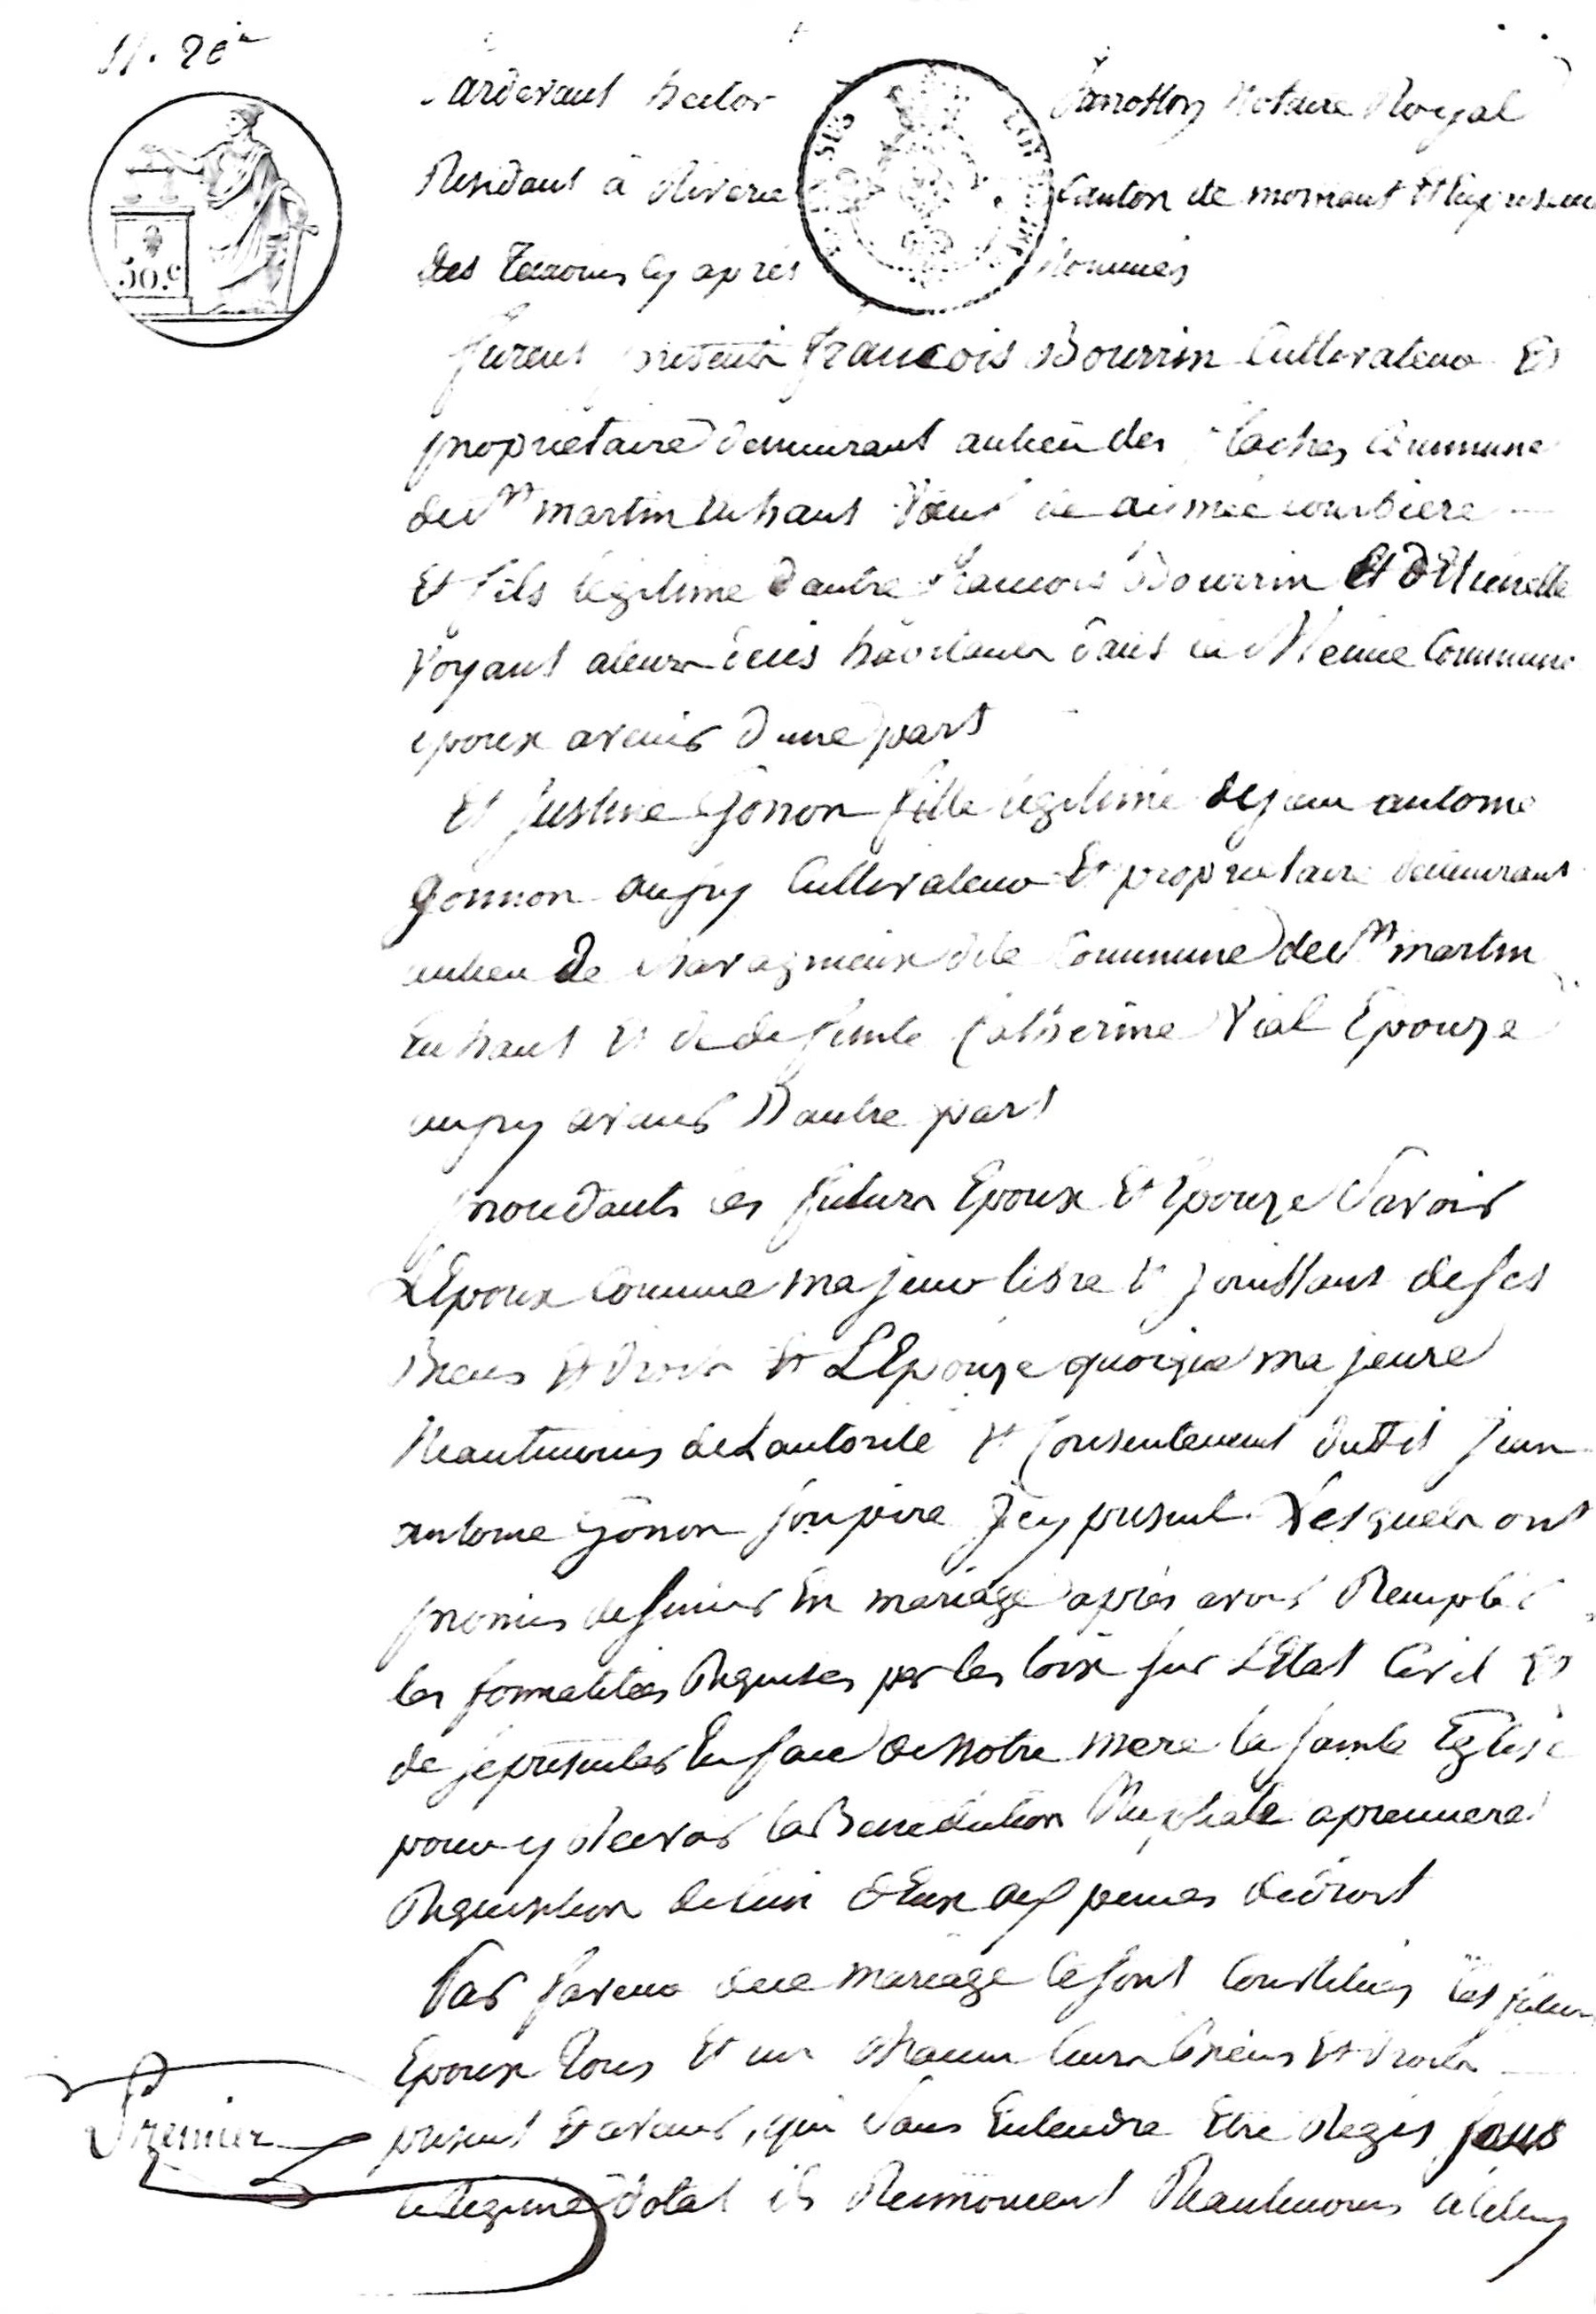 Pardevant hector Notaire Royal
Résidant à Riverie Canton de mornant Et En presence
des Temoins Cy après Nommés
furent présents françois Bourrin Cultivateur Et
propriétaire demeurant au lieu des Commune
de St martin En haut Veuf de aimée courbiere
Et fils légitime d'autre francois Bourrin Et d'Etiennette
Voyant a leur vivant habitants dans la Meme Commune
epoux avenir d'une part
Et Justine Gonon fille legitime de jean antoine
Gonnon aussy Cultivateur Et propriétaire demeurant
au lieu de chavagnieux dite Commune de St martin
En haut Et de defunte Catherine Vial Epouze
aussy avenir D'autre part
procedants les futurs Epoux Et Epouze Savoir
L'Epoux Comme majeur libre Et jouissant de ses
Biens Et Droits Et L'Epouze quoique majeure
Neantmoins de L'autorité Et Consentement dudit jean
antoine Gonon son père Icy present Lesquels ont
promis de s'unir En mariage après avoir Remplis
les formalitées Requises par les loix sur L'Etat Civil Et
de se présenter En face de Notre mere la sainte Eglise
pour y Recevoir la Benediction Nuptiale a premiere
Requisition de l'un d'Eux aux peines de droit
Par faveur de ce mariage se sont Constitués les futurs
Epoux Tous Et un chacun leurs biens Et droits
present Et avenir, qui Sans Entendre Etre Regis sous
le Regime Dotal ils Renoncent Neantmoins
Premier
50.c